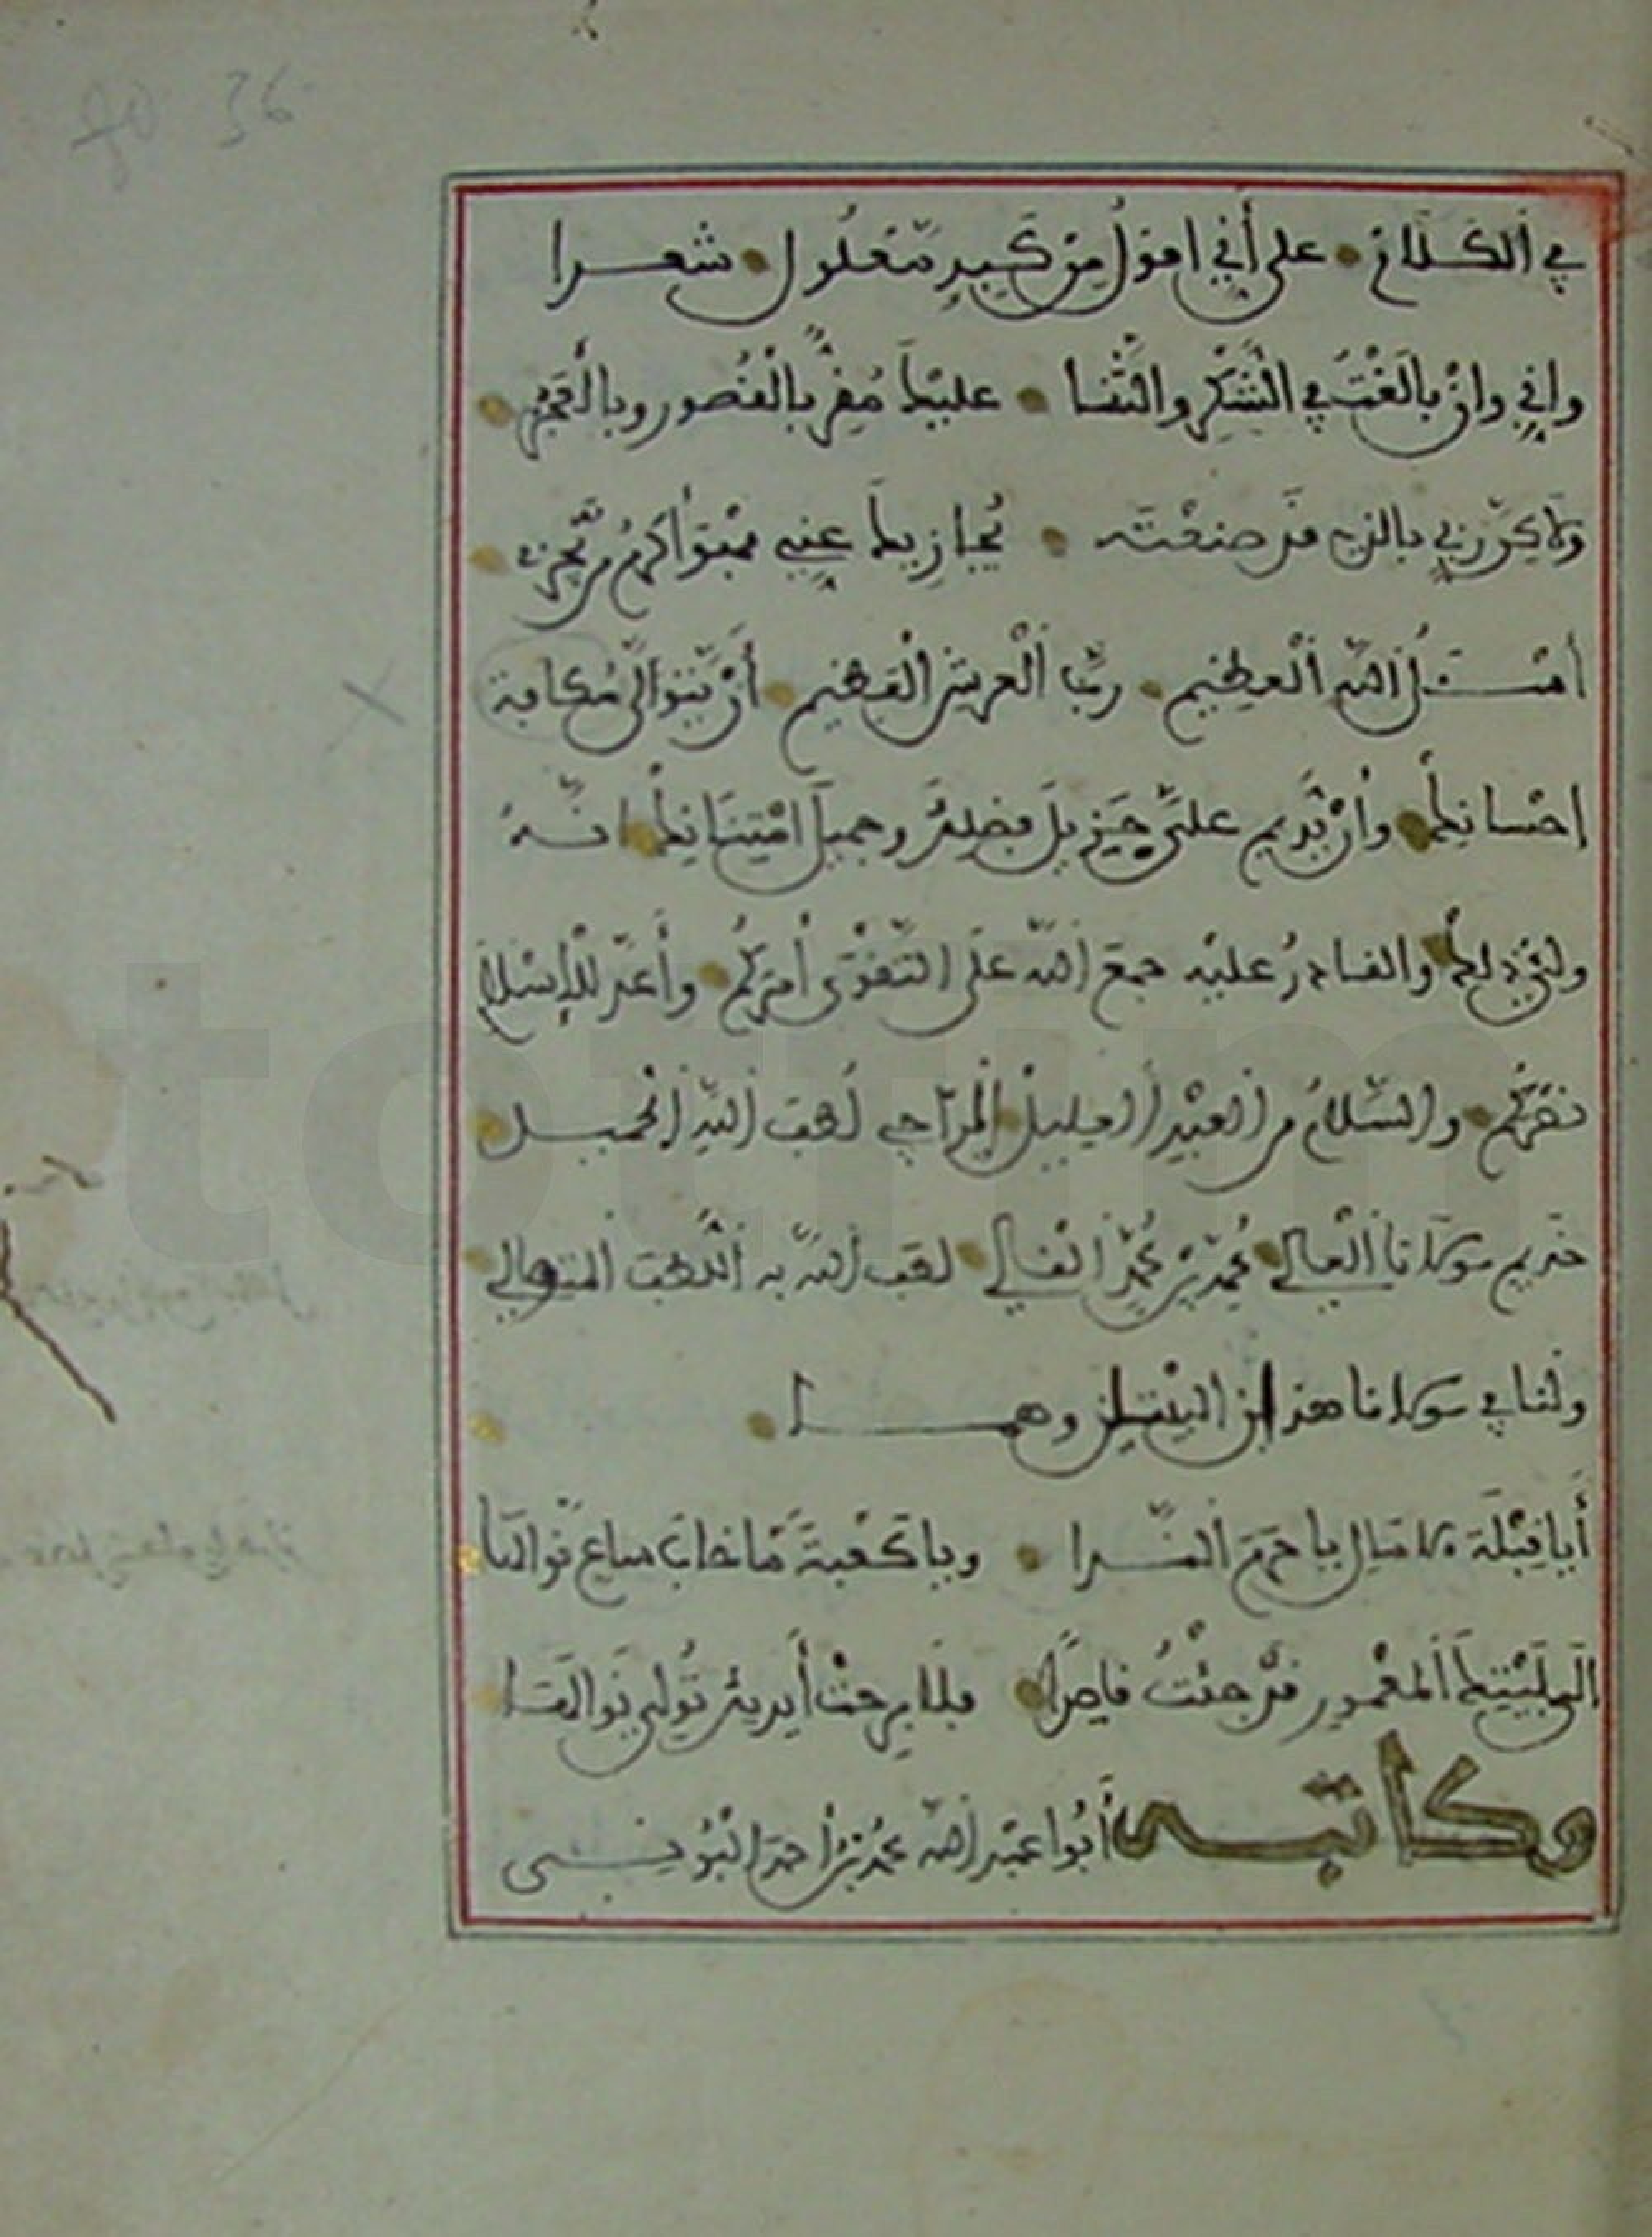 36
في الكلام على أني اقول من كبد معلول شعرا
واني وان بالغت في الشكر والثنا عليكم مقر بالقصور وبالعجز
ولاكن ربي بالذي قد صنعته يجازيكم عني فهو اكرم من يجزي
أسئل الله العظيم رب العرش العظيم أن يتوالى مكافاة
إحسانكم وان يديم علي جزيل فضلكم وجميل امتنانكم انه
ولي ذلكم والقادر عليه جمع الله على التقوى أمركم وأعز للإسلام
نصركم والسلام من العبيد العليل الراجي لطف الله الجميل
خديم مولانا العالي محمد بن محمد الغالي لطف الله به اللطف المتوالي
ولنا في مولانا هذان البيتان وهما
أيا قبلة الآمال يا حرم الندا ويا كعبة ما خاب ساع نوالها
الى بيتكم المعمور قد جئت قاصدا فلا برحت أيديك تولي نوالها
وكاتبه أبوا عبد الله محمد بن أحمد البوني
totfim